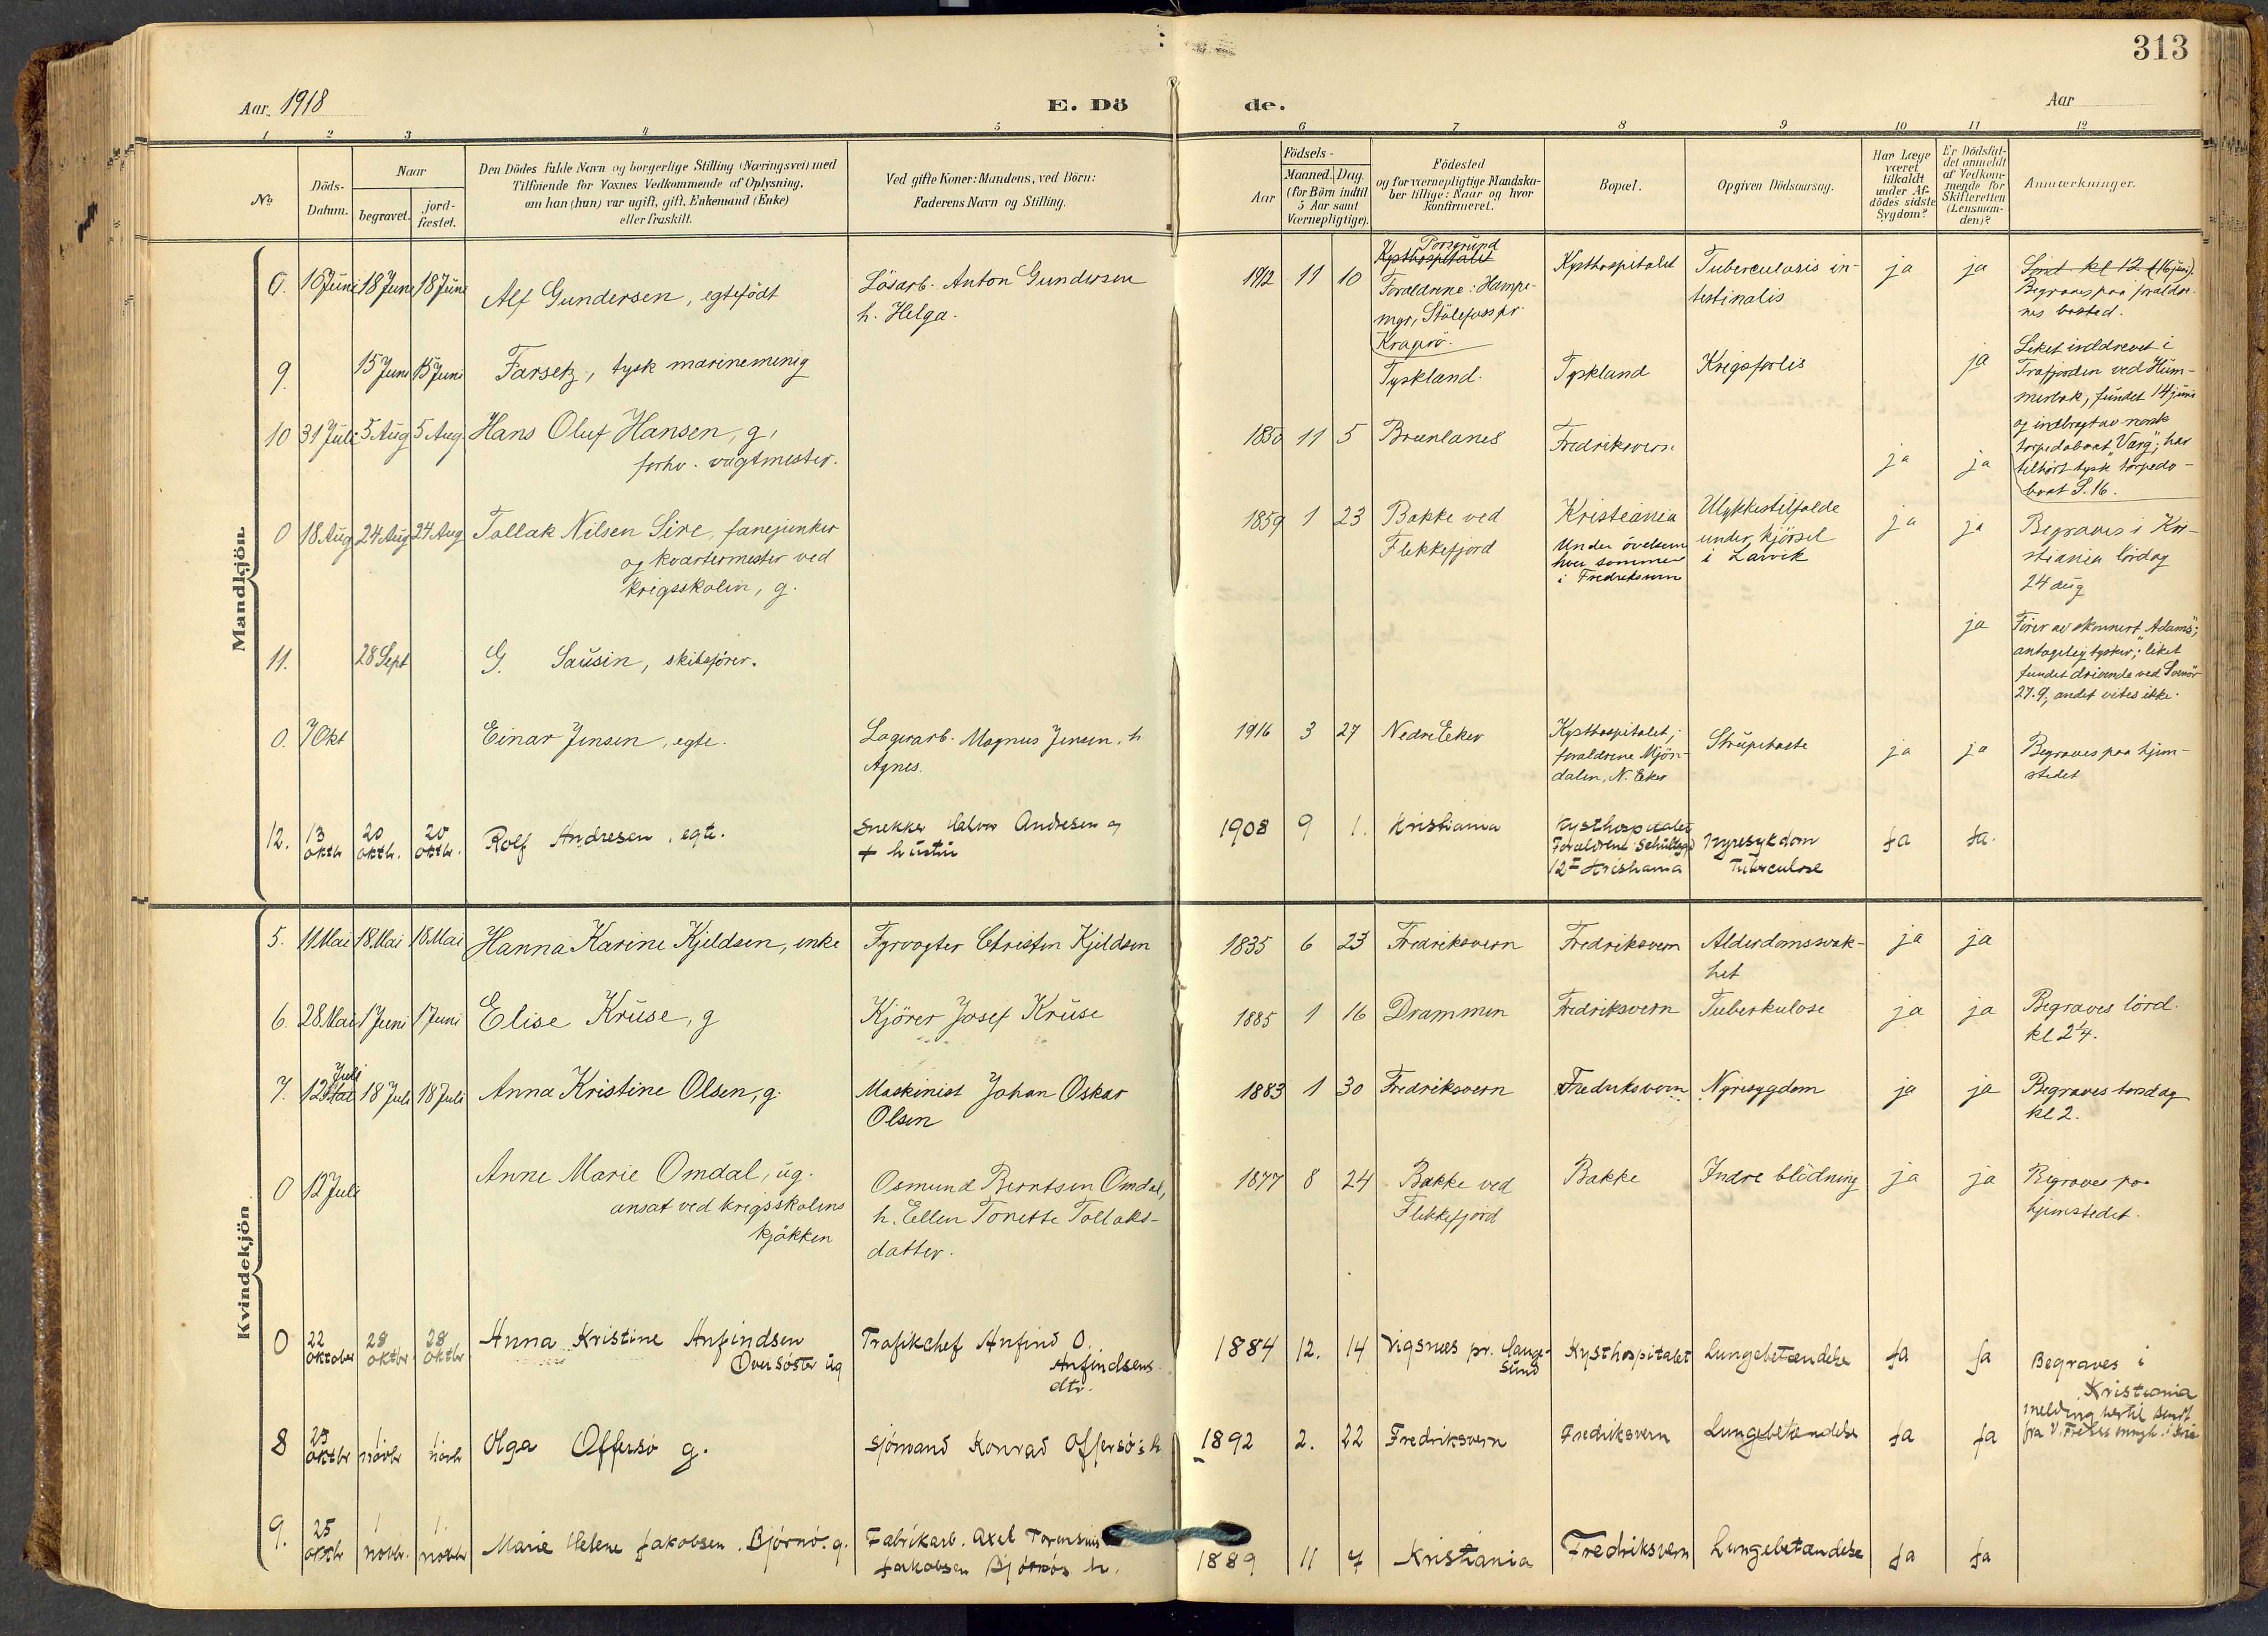 313
Aar 1918
E. Dö
de.
Aar
1 2 3 4 5 6 7 8 9 10 11 12
No.
Döds-
Datum.
Naar
begravet.
jord-
fæstet.
Den Dödes fulde Navn og borgerlige Stilling (Næringsvei) med
Tilföiende for Voxnes Vedkommende af Oplysning,
om han (hun) var ugift, gift, Enkemand (Enke)
eller fraskilt.
Ved gifte Koner: Mandens, ved Börn:
Faderens Navn og Stilling.
Födsels-
Aar
Maaned. Dag.
(for Börn indtil
5 Aar samt
Værnepligtige).
Födested
og for værnepligtige Mandska-
ber tillige: Naar og hvor
konfirmeret.
Bopæl.
Opgiven Dödsaarsag.
Har Læge
været
tilkaldt
under Af-
dödes sidste
Sygdom?
Er Dödsfal-
det anmeldt
af Vedkom-
mende for
Skifteretten
(Lensman-
den)?
Anmærkninger.
Mandkjön.
0. 16 Juni 18 Juni 18 Juni
Alf Gundersen, egtefödt
Lösarb. Anton Gundersen
h. Helga.
1912 11 10
Porsgrund
Kysthospitalet
Forældrene: Hampe-
myr, Stölefoss pr.
Kragerö.
Kysthospitalet
Tuberculosis in-
testinalis
ja ja
Sent kl 12 (16 juni).
Begraves paa forældre-
nes bosted.
9. 15 Juni 15 Juni
Farsetz, tysk marinemenig
Tyskland.
Tyskland
Krigsforlis
ja
Liket inddrevet i
Træfjorden ved Hum-
merbak, fundet 14 juni
og indbragt av norsk
torpedobaat "Varg"; har
tilhört tysk torpedo-
baat S. 16.
10 31 Juli 5 Aug 5 Aug
Hans Oluf Hansen, g,
forhv. vagtmester.
1850 11 5
Brunlanes
Fredriksvern
ja ja
0 18 Aug 24 Aug 24 Aug
Tollak Nilsen Sire, fanejunker
og kvartermester ved
krigsskolen, g.
1859 1 23
Bakke ved
Flekkefjord
Kristiania
Under övelsen
hver sommer
i Fredriksvern
Ulykkestilfælde
under kjörsel
i Larvik
ja ja
Begraves i Kri-
stiania lördag
24 aug
11. 28 Sept
G. Sausin, skibsförer.
ja
Förer av skonnert "Adams";
antagelig tysker; liket
fundet drivende ved Svenör
27.9; andet vites ikke.
0. 7 Okt
Einar Jensen, egte.
Lagerarb. Magnus Jensen, h
Agnes.
1916 3 27
Nedre Eker
Kysthospitalet;
forældrene Mjön-
dalen, N. Eker
Strupehoste
ja ja
Begraves paa hjem-
stedet
12. 13 oktbr 20 oktbr. 20 oktbr.
Rolf Andresen, egte.
Snekker Halvor Andresen og
+ hustru
1908 9 1.
Kristiania
Kysthospitalet
Forældrene
12 I Kristiania
Nyresykdom
Tuberculose
ja ja.
Kvindekjön.
5. 11 Mai 18 Mai 18 Mai
Hanna Karine Kjeldsen, enke
Fyrvogter Christen Kjeldsen
1835 6 23
Fredriksvern
Fredriksvern
Alderdomssvak-
het
ja ja
6. 28 Mai 1 Juni 1 Juni
Elise Kruse, g
Kjörer Josef Kruse
1885 1 16
Drammen
Fredriksvern
Tuberkulose
ja ja
Begraves lörd.
kl 2¼.
7. 12 Mai Juli 18 Juli 18 Juli
Anna Kristine Olsen, g.
Maskinist Johan Oskar
Olsen
1883 1 30
Fredriksvern
Fredriksvern
Nyresygdom
ja ja
Begraves torsdag
kl 2.
0 12 Juli
Anne Marie Omdal, ug.
ansat ved krigsskolens
kjökken
Osmund Berntsen Omdal,
h. Ellen Tonette Tollaks-
datter.
1877 8 24
Bakke ved
Flekkefjord
Bakke
Indre blödning
ja ja
Begraves paa
hjemstedet.
0 22 oktober 28 oktbr 28 oktbr
Anna Kristine Anfindsen
Oversöster ug
Trafikchef Anfind O.
Anfindsens
dtr.
1884 12. 14
Vigsnæs pr. Lange-
sund
Kysthospitalet
Lungebetændelse
ja ja
Begraves i
Kristiania
melding hertil sendt
fra V.
8 25 oktbr 1 novbr 1 novbr
Olga Offersö g.
Sjömand Konrad Offersö's h
1892 2. 22
Fredriksvern
Fredriksvern
Lungebetændelse
ja ja
9. 25 oktbr 1 novbr. 1. novbr
Marie Helene Jakobsen Björnö. g.
Fabrikarb. Axel
Jakobsen Björnös h.
1889 11 7
Kristiania
Fredriksvern
Lungebetændelse
ja ja